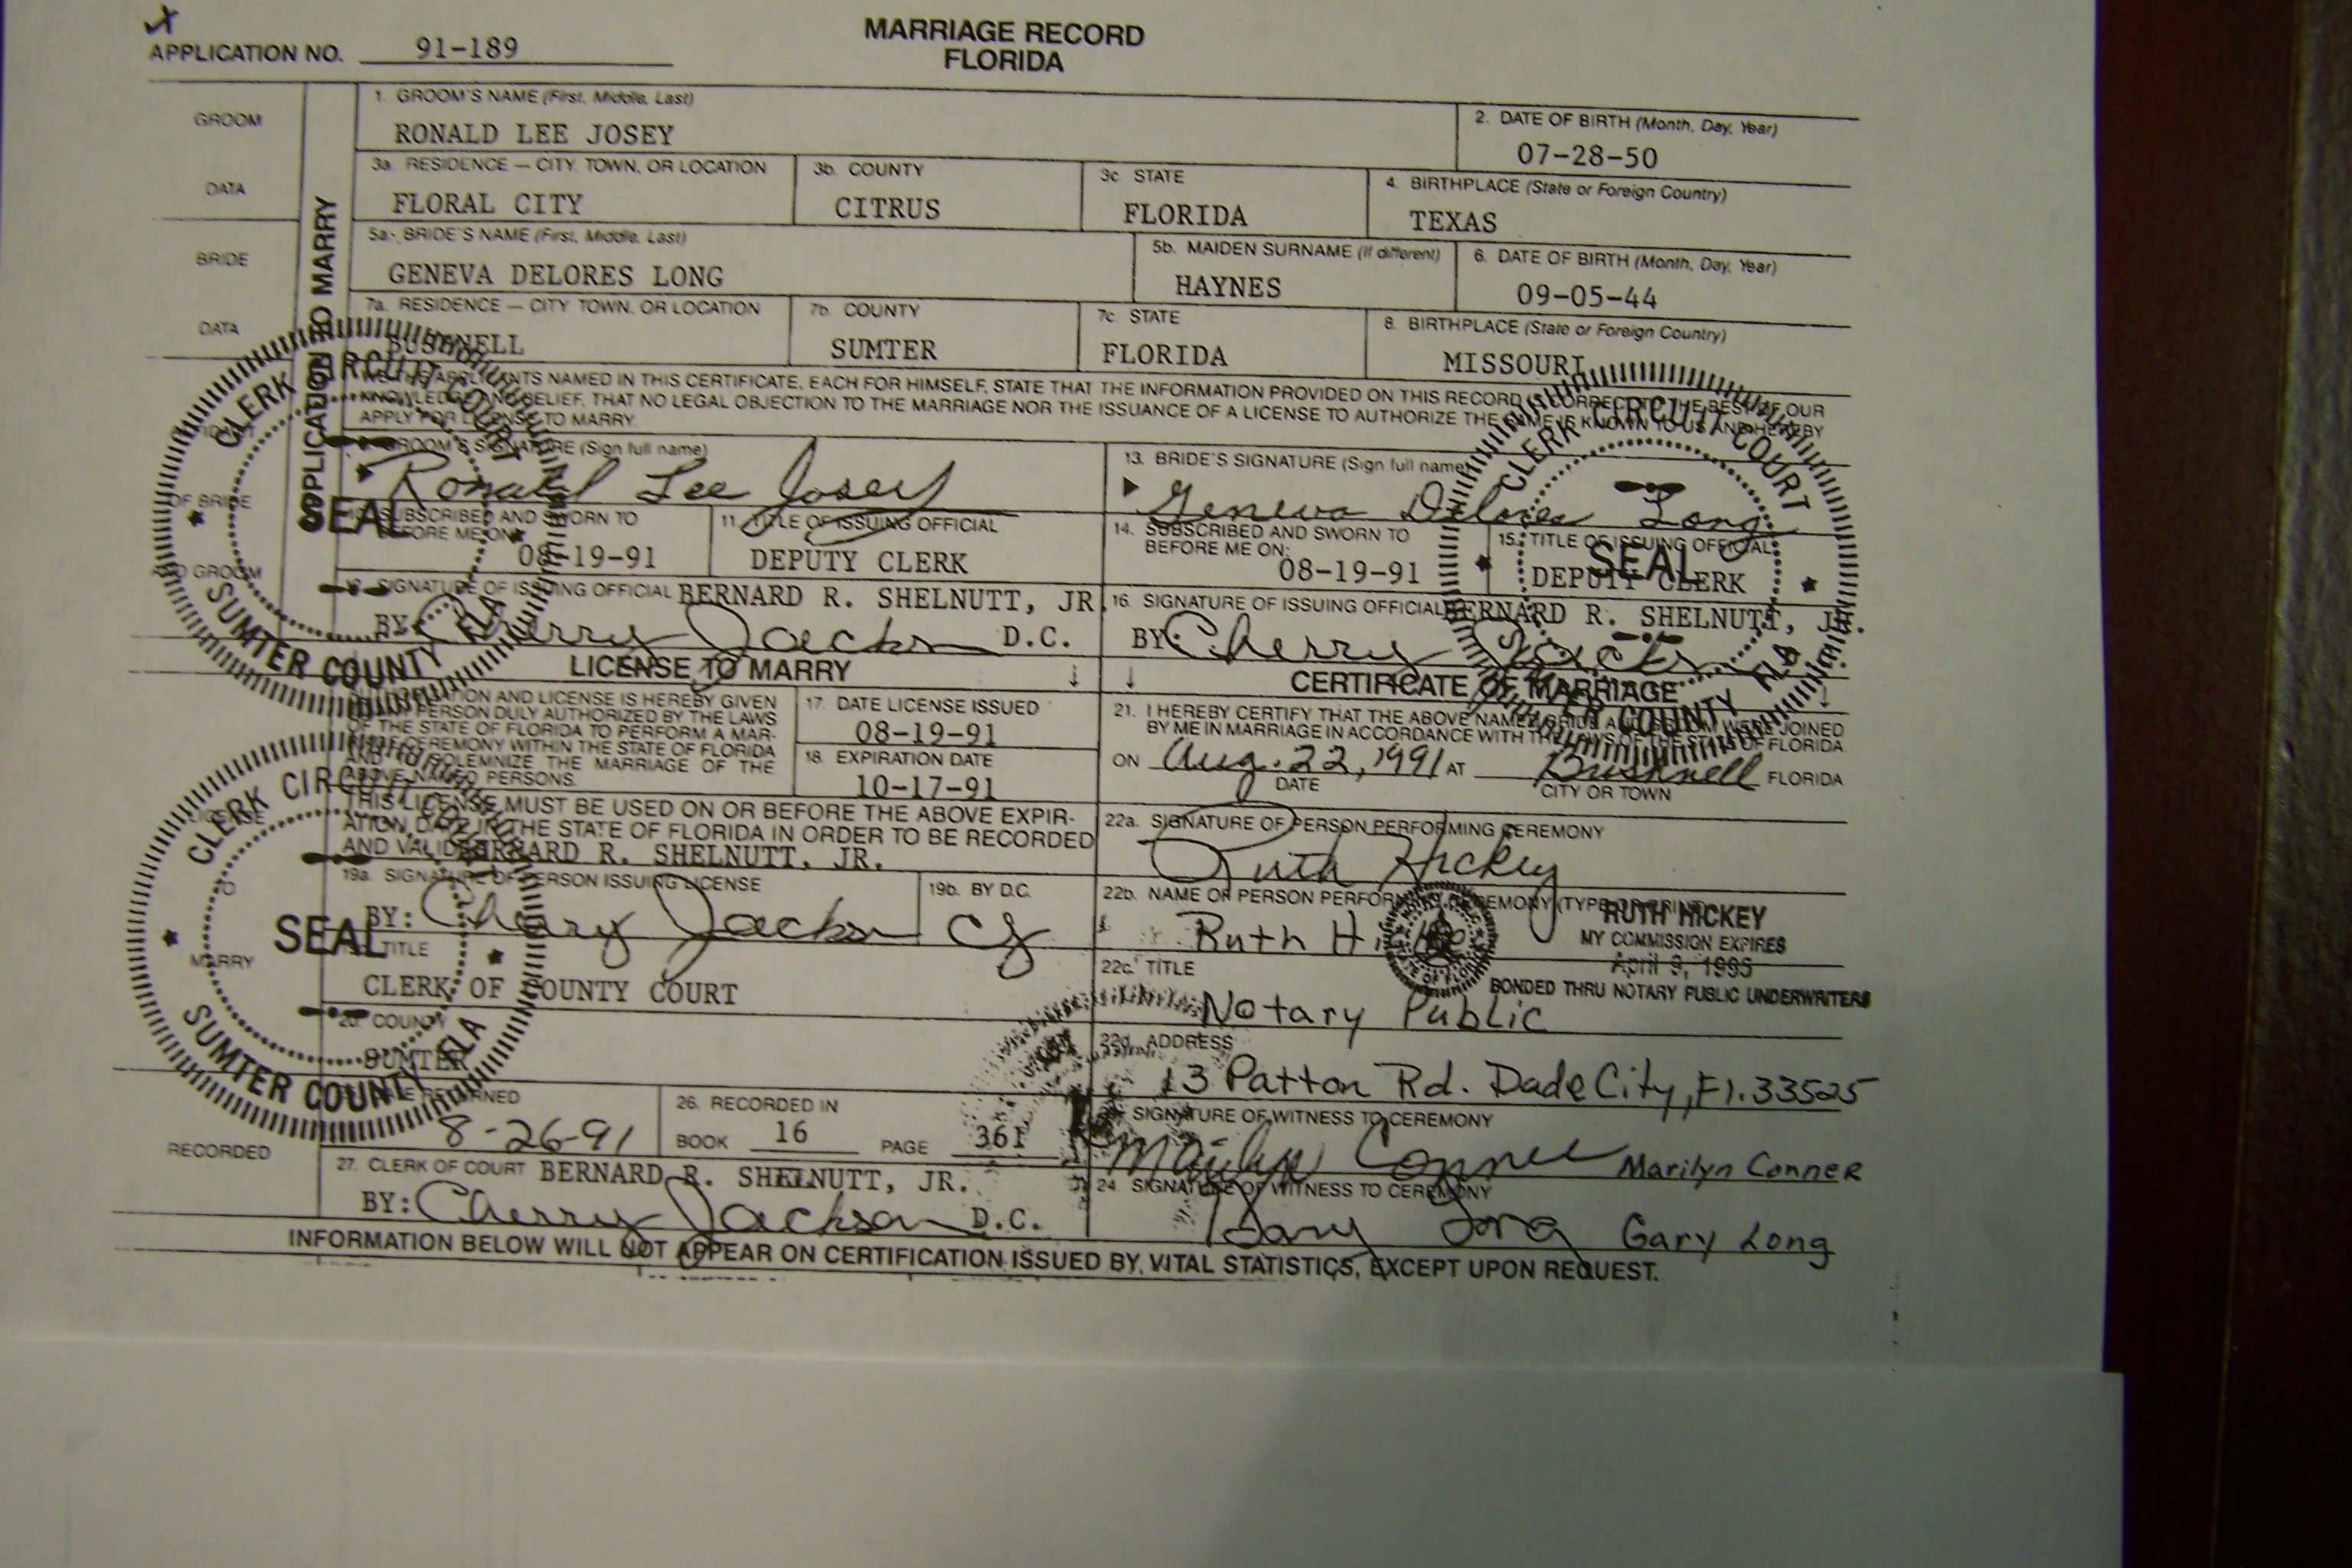 MARRIAGE RECORD
FLORIDA
APPLICATION NO. 91-189
APPLICATION TO MARRY
GROOM DATA
1. GROOM'S NAME (First, Middle, Last)
RONALD LEE JOSEY
2. DATE OF BIRTH (Month, Day, Year)
07-28-50
3a. RESIDENCE — CITY, TOWN, OR LOCATION
FLORAL CITY
3b. COUNTY
CITRUS
3c. STATE
FLORIDA
4. BIRTHPLACE (State or Foreign Country)
TEXAS
BRIDE DATA
5a. BRIDE'S NAME (First, Middle, Last)
GENEVA DELORES LONG
5b. MAIDEN SURNAME (If different)
HAYNES
6. DATE OF BIRTH (Month, Day, Year)
09-05-44
7a. RESIDENCE — CITY TOWN, OR LOCATION
BUSHNELL
7b. COUNTY
SUMTER
7c. STATE
FLORIDA
8. BIRTHPLACE (State or Foreign Country)
MISSOURI
WE THE APPLICANTS NAMED IN THIS CERTIFICATE, EACH FOR HIMSELF, STATE THAT THE INFORMATION PROVIDED ON THIS RECORD IS CORRECT TO THE BEST OF OUR
KNOWLEDGE AND BELIEF, THAT NO LEGAL OBJECTION TO THE MARRIAGE NOR THE ISSUANCE OF A LICENSE TO AUTHORIZE THE SAME IS KNOWN TO US AND HEREBY
APPLY FOR LICENSE TO MARRY.
OF BRIDE
AND GROOM
GROOM'S SIGNATURE (Sign full name)
Ronald Lee Josey
13. BRIDE'S SIGNATURE (Sign full name)
Geneva Delores Long
SUBSCRIBED AND SWORN TO
BEFORE ME ON:
08-19-91
11. TITLE OF ISSUING OFFICIAL
DEPUTY CLERK
14. SUBSCRIBED AND SWORN TO
BEFORE ME ON:
08-19-91
15. TITLE OF ISSUING OFFICIAL
DEPUTY CLERK
12. SIGNATURE OF ISSUING OFFICIAL BERNARD R. SHELNUTT, JR.
BY: Cherry Jackson D.C.
16. SIGNATURE OF ISSUING OFFICIAL BERNARD R. SHELNUTT, JR.
BY: Cherry Jackson
CLERK CIRCUIT COURT
SEAL
SUMTER COUNTY FLA
CLERK CIRCUIT COURT
SEAL
SUMTER COUNTY FLA
LICENSE TO MARRY ↓
↓ CERTIFICATE OF MARRIAGE ↓
AUTHORIZATION AND LICENSE IS HEREBY GIVEN
PERSON DULY AUTHORIZED BY THE LAWS
OF THE STATE OF FLORIDA TO PERFORM A MAR-
RIAGE CEREMONY WITHIN THE STATE OF FLORIDA
AND SOLEMNIZE THE MARRIAGE OF THE
ABOVE NAMED PERSONS.
17. DATE LICENSE ISSUED
08-19-91
18. EXPIRATION DATE
10-17-91
THIS LICENSE MUST BE USED ON OR BEFORE THE ABOVE EXPIR-
ATION DATE IN THE STATE OF FLORIDA IN ORDER TO BE RECORDED
AND VALID. BERNARD R. SHELNUTT, JR.
LICENSE
TO
MARRY
19a. SIGNATURE OF PERSON ISSUING LICENSE
BY: Cherry Jackson
19b. BY D.C.
CJ
TITLE
CLERK OF COUNTY COURT
20. COUNTY
SUMTER
CLERK CIRCUIT COURT
SEAL
SUMTER COUNTY FLA
21. I HEREBY CERTIFY THAT THE ABOVE NAMED BRIDE AND GROOM WERE JOINED
BY ME IN MARRIAGE IN ACCORDANCE WITH THE LAWS OF THE STATE OF FLORIDA
ON Aug. 22, 1991 AT Bushnell FLORIDA
DATE CITY OR TOWN
22a. SIGNATURE OF PERSON PERFORMING CEREMONY
Ruth Hickey
22b. NAME OF PERSON PERFORMING CEREMONY (TYPE OR PRINT)
Ruth Hickey
RUTH HICKEY
MY COMMISSION EXPIRES
April 9, 1995
BONDED THRU NOTARY PUBLIC UNDERWRITERS
STATE OF FLORIDA
22c. TITLE
Notary Public
22d. ADDRESS
13 Patton Rd. Dade City, Fl. 33525
SIGNATURE OF WITNESS TO CEREMONY
Marilyn Conner Marilyn Conner
24. SIGNATURE OF WITNESS TO CEREMONY
Gary Long Gary Long
RECORDED
DATE RETURNED
8-26-91
26. RECORDED IN
BOOK 16 PAGE 361
27. CLERK OF COURT BERNARD R. SHELNUTT, JR.
BY: Cherry Jackson D.C.
INFORMATION BELOW WILL NOT APPEAR ON CERTIFICATION ISSUED BY VITAL STATISTICS, EXCEPT UPON REQUEST.